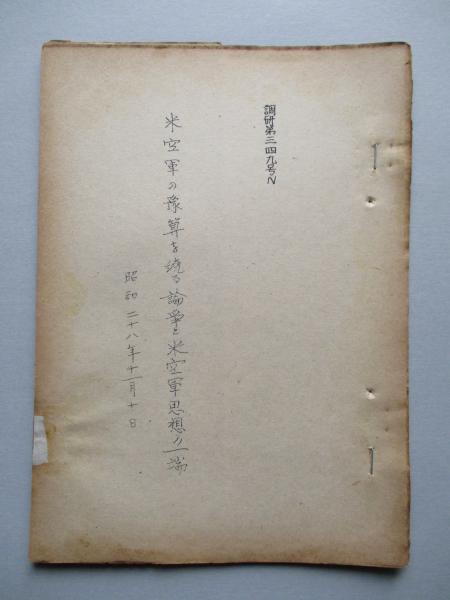 調研第三四九号N
米空軍の豫算を繞る論爭と米空軍思想ノ一端
昭和二十八年十一月十日